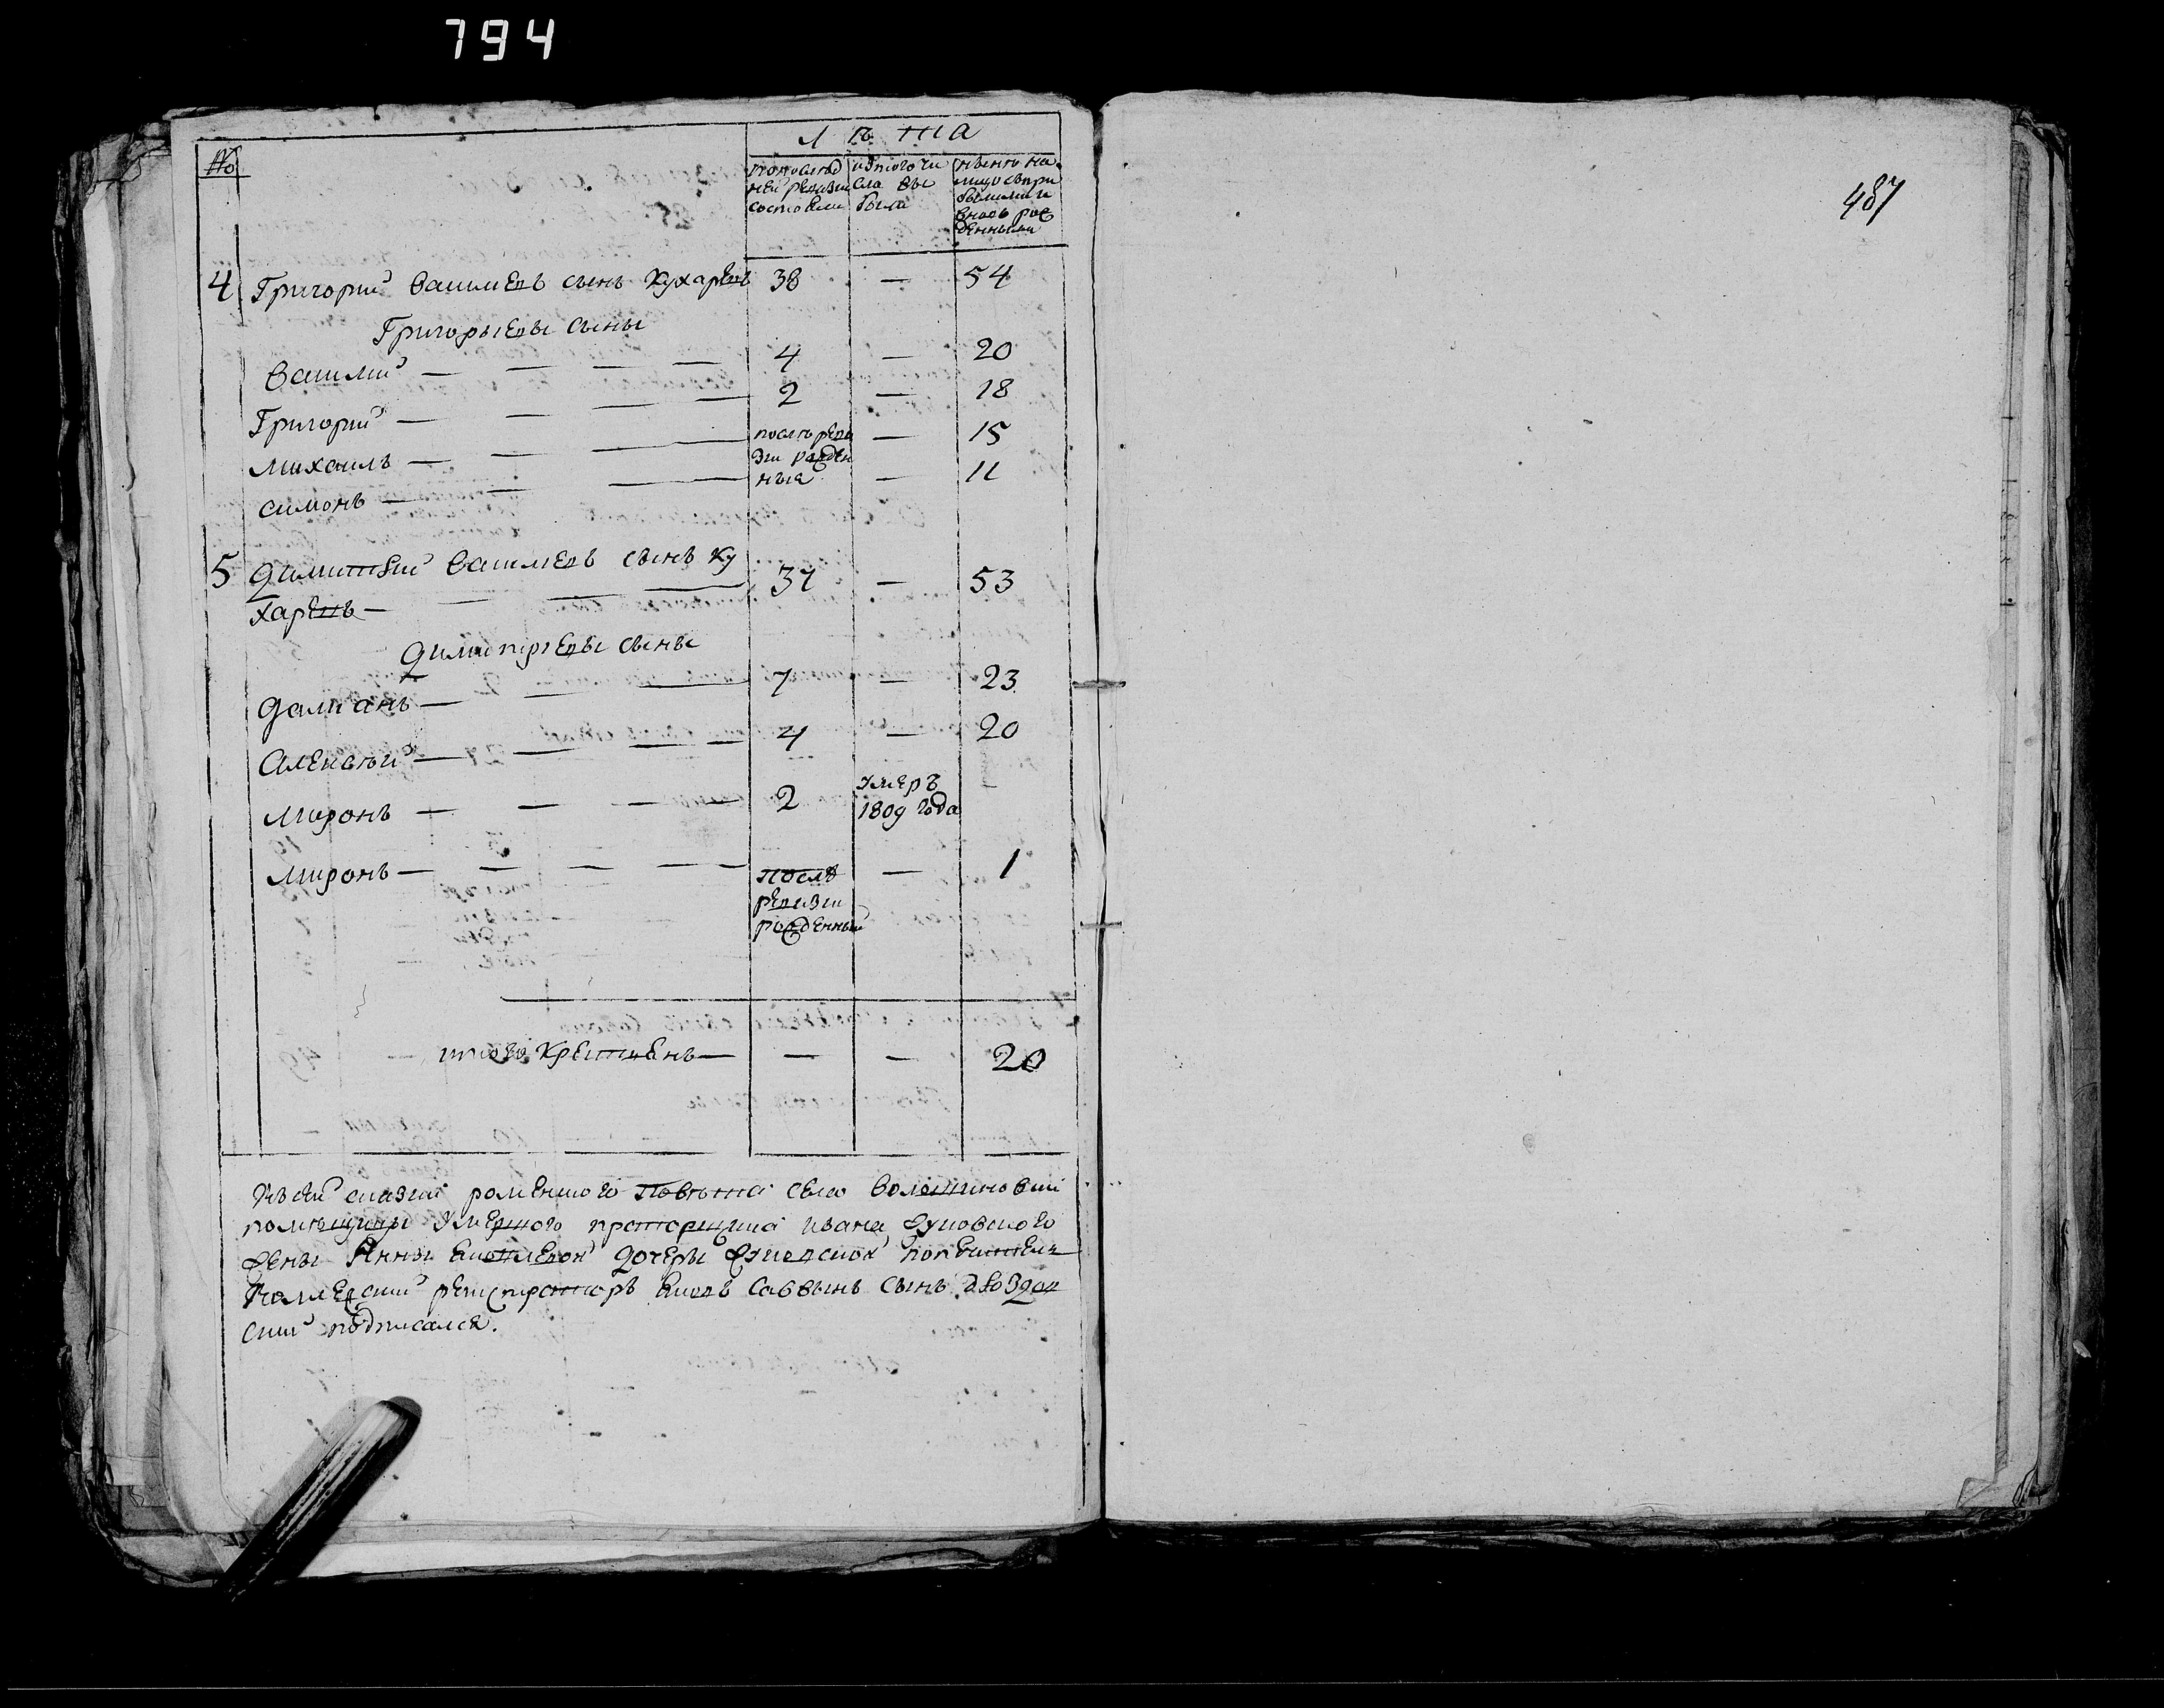 794
487
№
Лѣта
попослѣд
ней ревизии
состояли
исътого чи
сла вы
было
нынѣ на
лицо съпри
былыми и
вновь рож
денными
4 Григорий Василієвъ сынъ Кухаревъ 38 — 54
Григорыевы сыны
Василий — — — — 4 — 20
Григорий — — — — 2 — 18
Михаилъ — — — послѣ реви — 15
зии рожден
Симонъ — — — ныя — 11
5 Димитрий Василієвъ сынъ Ку
харевъ — — — — 37 — 53
Димитріевы сыны
Даміанъ — — — — 7 — 23
Алексѣй — — — — 4 — 20
Миронъ — — — — 2 умеръ
1809 года
Миронъ — — — — послѣ — 1
ревизии
рожденный
итого крестьянъ — — — 20
Къ сей сказки роменского повѣта села волошиновки
помѣщицы умершого Ивана
жены Анны дочеры
Коллежский регистраторъ Саввынъ сынъ
ский подписался.